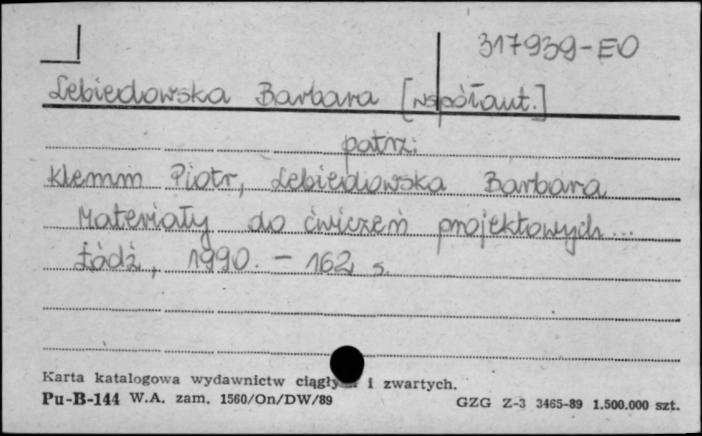 317939-EO
Lebiedowska Barbara [współaut.]
patrz:
Klemm Piotr, Lebiedowska Barbara
Materiały do ćwiczeń projektowych...
Łódź, 1990. - 162 s.
Karta katalogowa wydawnictw i zwartych.
Pu-B-144 W.A. zam. 1560/On/DW/89 GZG Z-3 3465-89 1.500.000 szt.